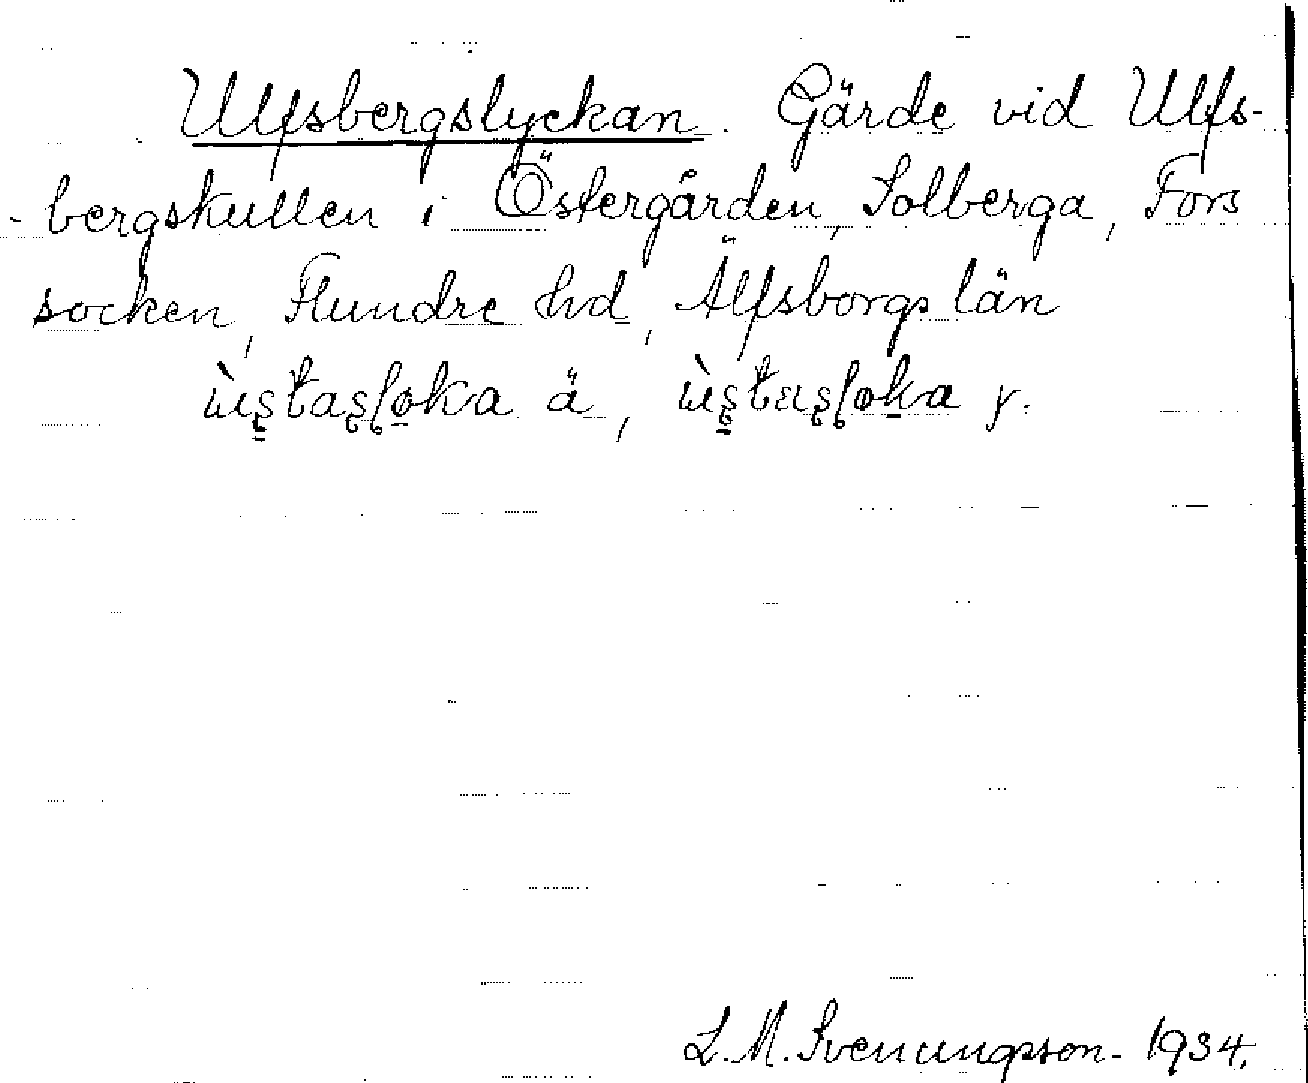 Ulfsbergslyckan. Gärde vid Ulfs-
-bergskullen i Östergården, Solberga, Fors
socken, Flundre hd, Älfsborgs län
ä, y.
L. M. Svenungsson - 1934.